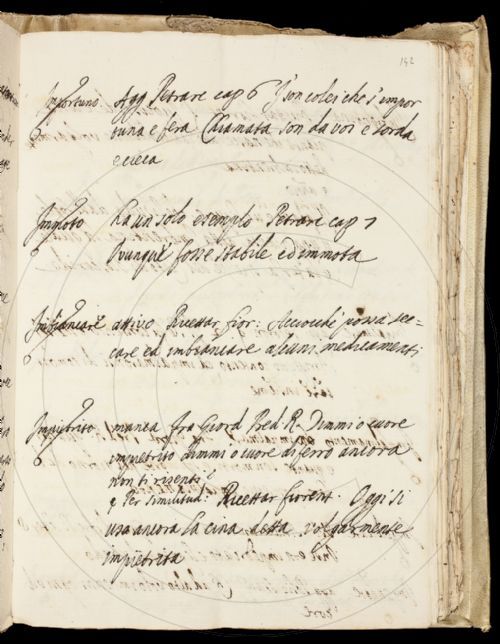 142
Importuno Agg Petrarc cap 6 I' son colei che s' impor
tuna e fera Chiamata son da voi e sorda
e cieca
Immoto ha un solo esempio Petrarc cap 7
fosse stabile ed immota
Imbiancare attivo Ricettar fior: Acciocché possa sec=
care ed imbiancare alcuni medicamenti
Impietrito manca Fra Giord Pred R. Dimmi o cuore
impietrito dimmi o cuore di ferro ancora
non ti risenti?
Per similitud: Ricettar fiorent. Oggi si
usa ancora la cina detta volgarmente
impietrita